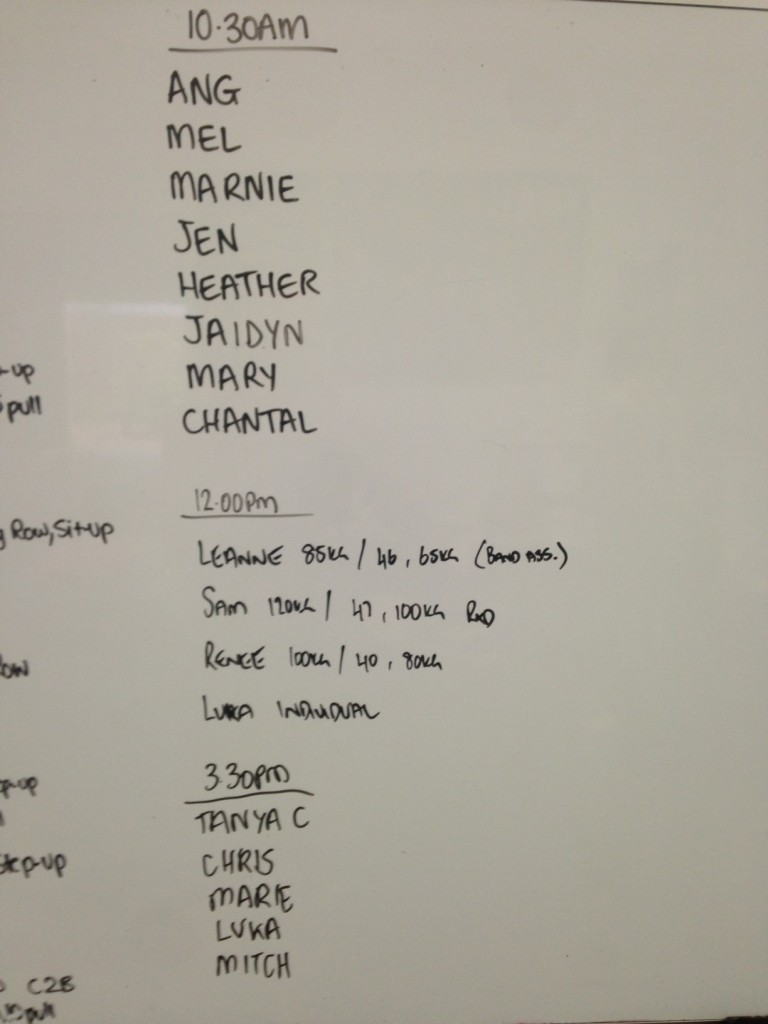 10.30AM
ANG
MEL
MARNIE
JEN
HEATHER
JAIDYN
MARY
CHANTAL
-up
pull
12.00pm
Row, Sit-up
LEANNE 85KG / 46, 65KG (BAND ASS.)
SAM 120KG / 47, 100KG RXD
RENEE 100KG / 40, 80KG
LUKA INDIVIDUAL
3.30pm
-up
TANYA C
CHRIS
Step-up
MARIE
LUKA
MITCH
C2B
pull